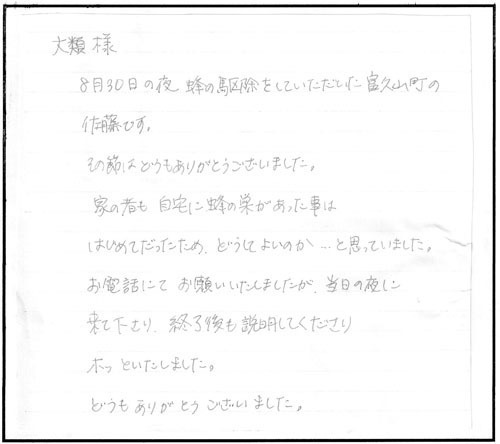 大類 様
8月30日の夜 蜂の駆除をしていただいた 富久山町の
佐藤です。
その節はどうもありがとうございました。
家の者も 自宅に蜂の巣があった事は
はじめてだったため、どうしてよいのか…と思っていました。
お電話にて お願いいたしましたが、当日の夜に
来て下さり、終了後も説明してくださり
ホッといたしました。
どうもありがとうございました。